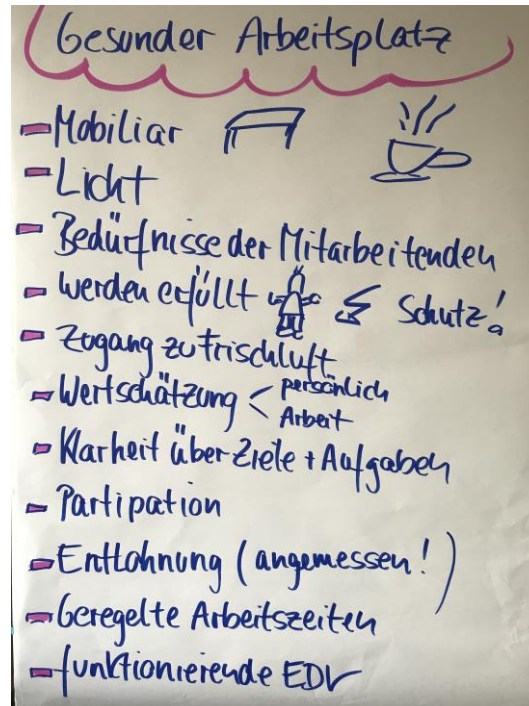 Gesunder Arbeitsplatz
- Mobiliar
- Licht
- Bedürfnisse der Mitarbeitenden
- werden erfüllt Schutz!
- Zugang zu Frischluft
- Wertschätzung < persönlich
Arbeit
- Klarheit über Ziele + Aufgaben
- Partipation
- Entlohnung (angemessen!)
- Geregelte Arbeitszeiten
- funktionierende EDV